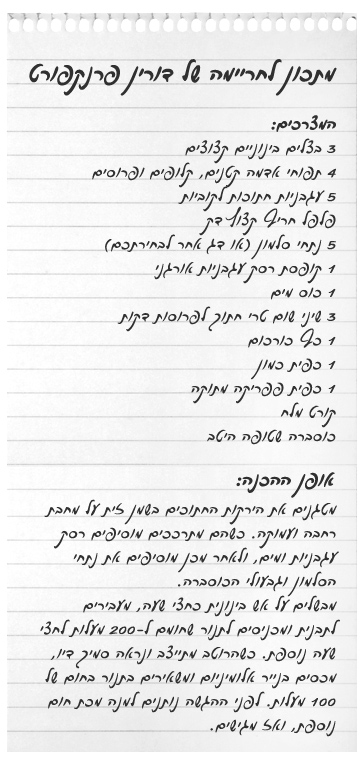 מתכון לחריימה של דורין פרנקפורט
המצרכים:
3 בצלים בינוניים קצוצים
4 תפוחי אדמה קטנים, קלופים ופרוסים
5 עגבניות חתוכות לקוביות
פלפל חריף קצוץ דק
5 נתחי סלמון (או דג אחר לבחירתכם)
1 קופסת רסק עגבניות אורגני
1 כוס מים
3 שיני שום טרי חתוך לפרוסות דקות
1 כף כורכום
1 כפית כמון
1 כפית פפריקה מתוקה
קורט מלח
כוסברה שטופה היטב
אופן ההכנה:
מטגנים את הירקות החתוכים בשמן זית על מחבת
רחבה ועמוקה. כשהם מתרככים מוסיפים רסק
עגבניות ומים, ולאחר מכן מוסיפים את נתחי
הסלמון וגבעולי הכוסברה.
מבשלים על אש בינונית כחצי שעה, מעבירים
לתבנית ומכניסים לתנור שחומם ל-200 מעלות לחצי
שעה נוספת. כשהרוטב מתייצב ונראה סמיך דיו,
מכסים בנייר אלומיניום ומשאירים בתנור בחום של
100 מעלות. לפני ההגשה נותנים למנה מכת חום
נוספת, ואז מגישים.